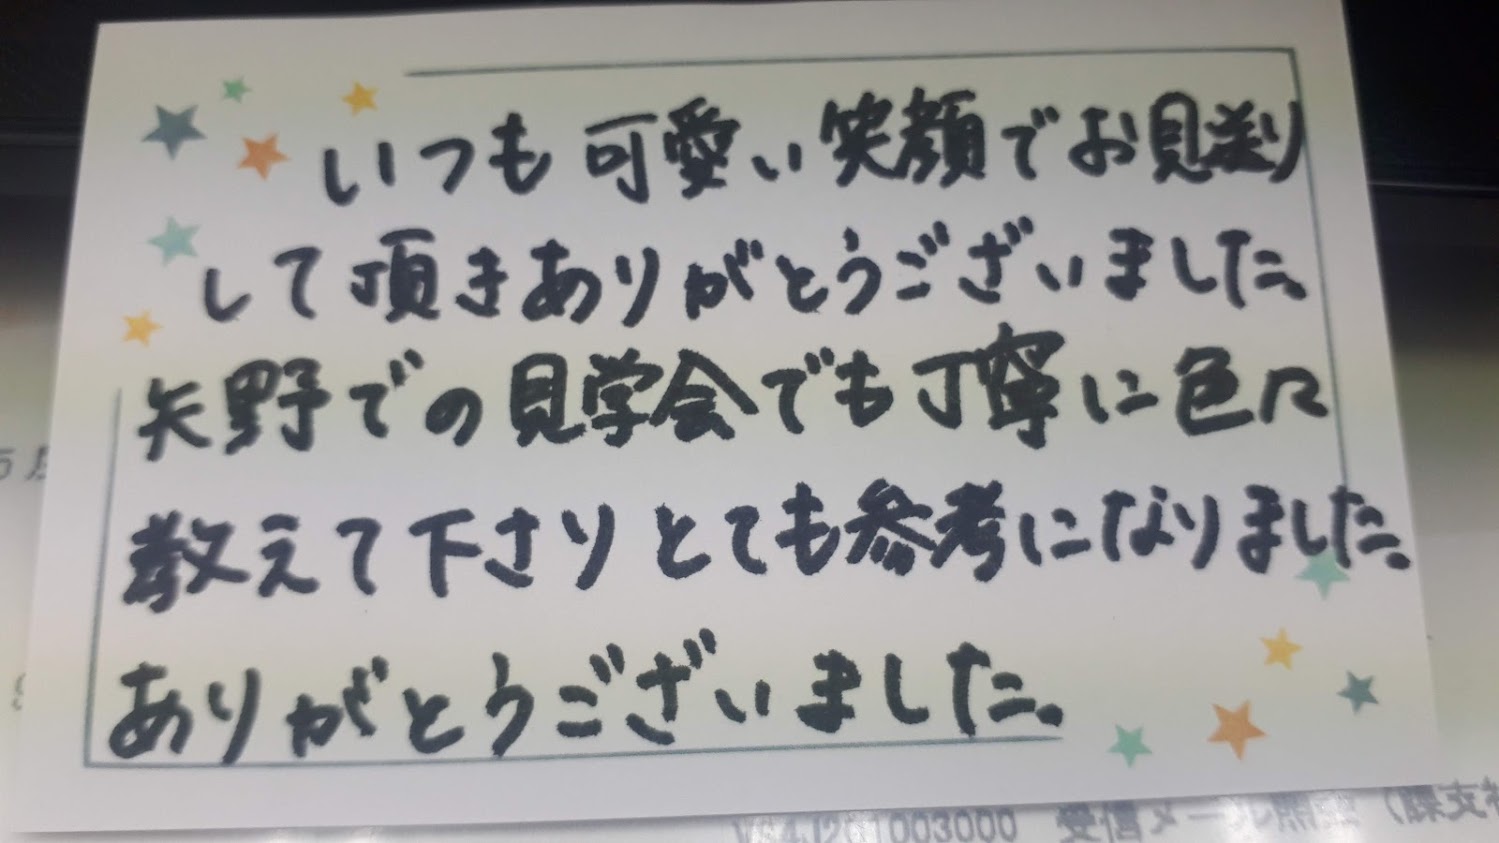 いつも可愛い笑顔でお見送り
して頂きありがとうございました。
矢野での見学会でも丁寧に色々
教えて下さりとても参考になりました。
ありがとうございました。
VS4J201003000 受信メール照会（課支社